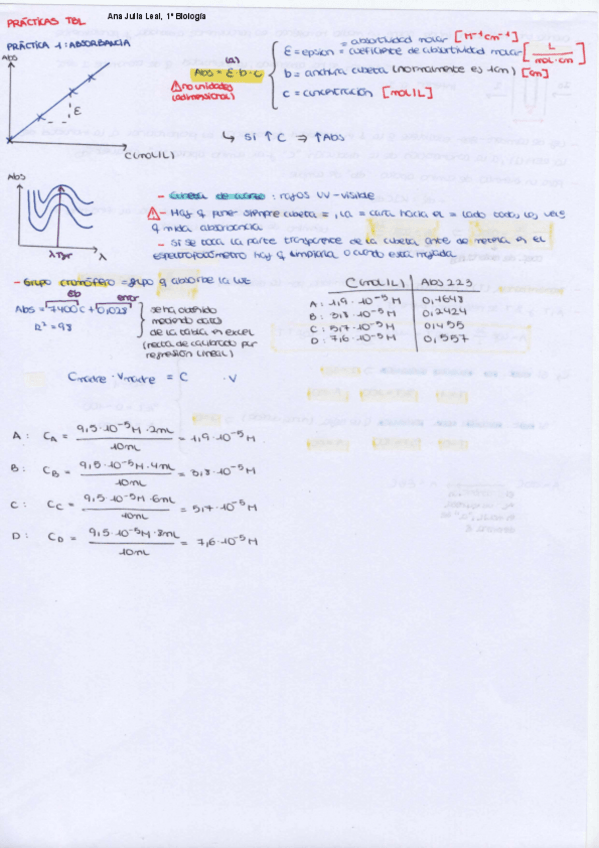 Ana Julia Leal, 1º Biología
PRÁCTICAS TBL
PRÁCTICA 1: ABSORBANCIA
Abs
ε
C(mol/L)
(a)
Abs = ε·b·c
⚠ no unidades
(adimensional)
= absortividad molar [M⁻¹cm⁻¹]
ε = epsilon = coeficiente de absortividad molar [L / mol·cm]
b = anchura cubeta (normalmente es 1cm) [cm]
c = concentración [mol/L]
↳ Si ↑ C ⇒ ↑ Abs
Abs
λ
- Cubeta de cuarzo: rayos UV-visible
⚠ - Hay q poner siempre cubeta =, la = cara hacia el = lado todas las veces
q mida absorbancia
- Si se toca la parte transparente de la cubeta antes de meterla en el
espectrofotómetro hay q limpiarla o cuando está mojada.
- Grupo cromóforo = grupo q absorbe la luz
εb error
Abs = 7400C + 0,028
R² = 98
se ha obtenido
metiendo datos
de la tabla en excel
(recta de calibrado por
regresión lineal)
C(mol/L) Abs 223
A: 1,9·10⁻⁵M 0,1648
B: 3,8·10⁻⁵M 0,2424
C: 5,7·10⁻⁵M 0,455
D: 7,6·10⁻⁵M 0,557
Cmadre · Vmadre = C · V
A: C_A = 9,5·10⁻⁵M·2mL / 10mL = 1,9·10⁻⁵M
B: C_B = 9,5·10⁻⁵M·4mL / 10mL = 3,8·10⁻⁵M
C: C_C = 9,5·10⁻⁵M·6mL / 10mL = 5,7·10⁻⁵M
D: C_D = 9,5·10⁻⁵M·8mL / 10mL = 7,6·10⁻⁵M